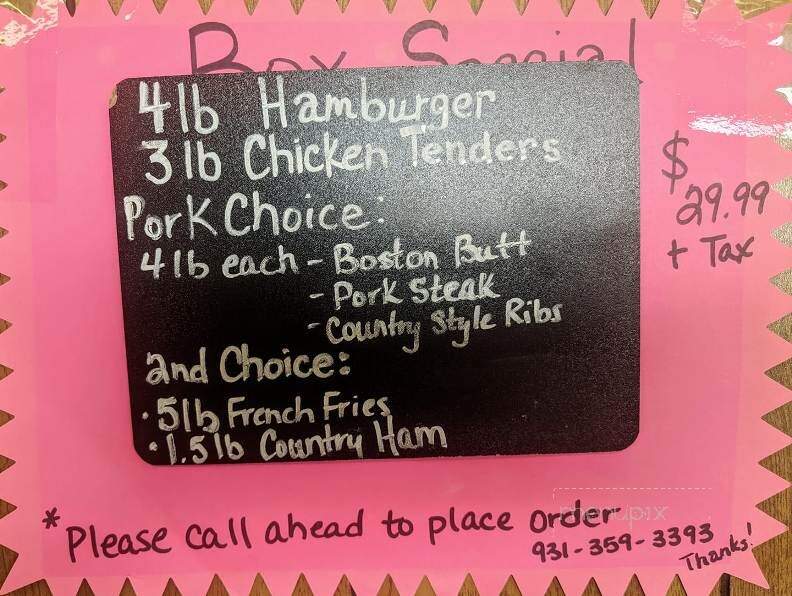 Box Special
4 lb Hamburger
3 lb Chicken Tenders
Pork Choice:
4 lb each - Boston Butt
- Pork Steak
- Country Style Ribs
and Choice:
• 5 lb French Fries
• 1.5 lb Country Ham
$
29.99
+ Tax
* Please call ahead to place order
931-359-3393
Thanks!
menupix